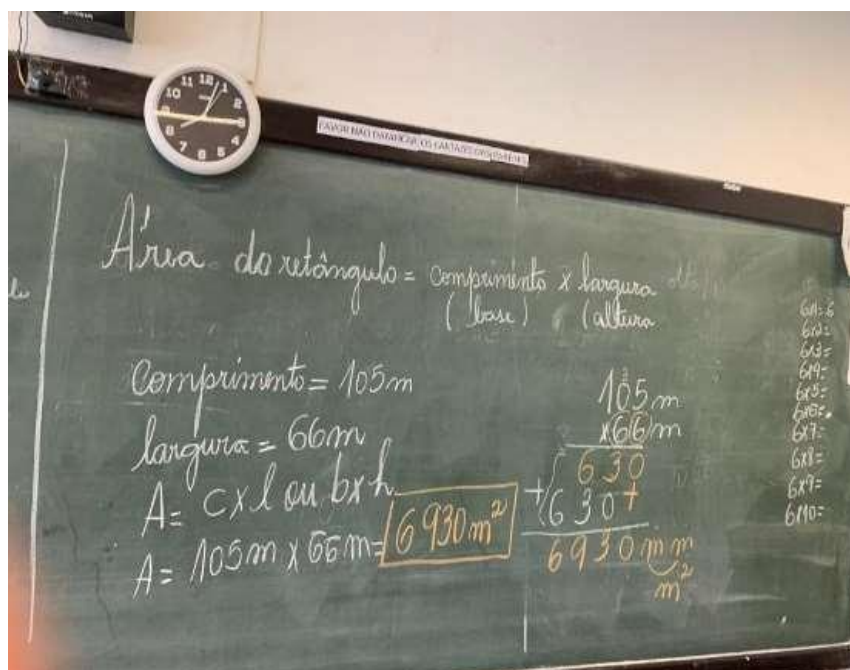 11 12 1
10 2
9 3
8 4
7 6 5
FAVOR NÃO
Área do retângulo = comprimento x largura
(base) (altura
Comprimento = 105m
largura = 66m
A= c x l ou b x h
A= 105m x 66m= 6 930 m²
105m
x66m
630
+630+
6930 m m
m²
6x1=6
6x2=
6x3=
6x4=
6x5=
6x6=
6x7=
6x8=
6x9=
6x10=